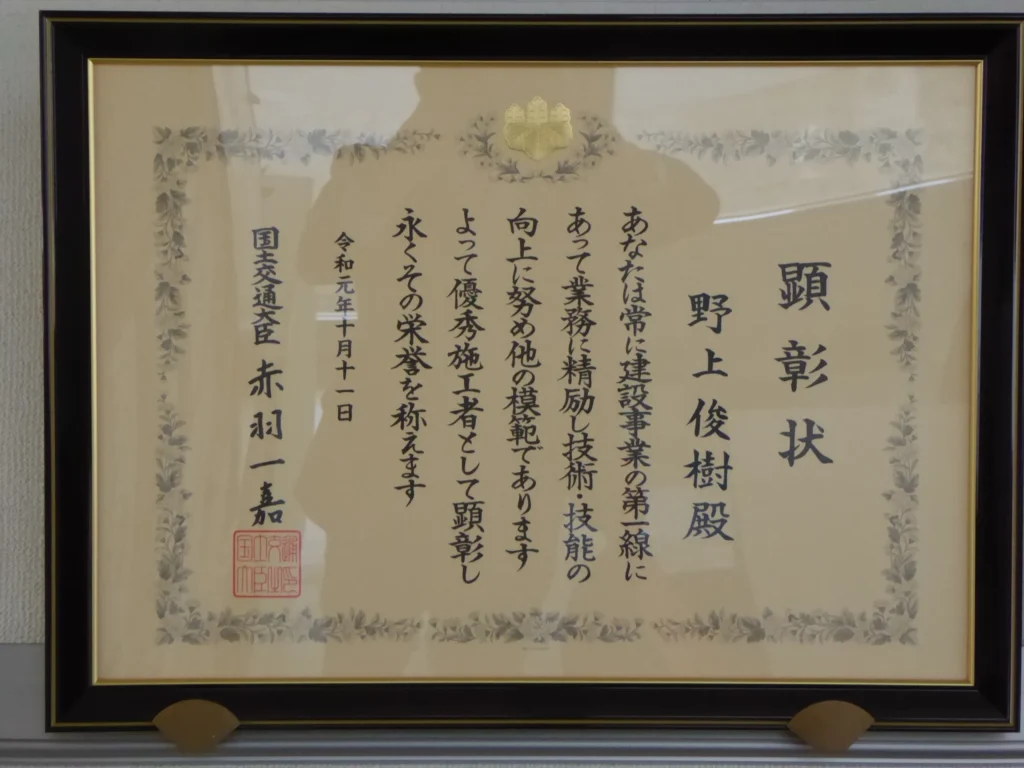 顕彰状
野上俊樹殿
あなたは常に建設事業の第一線に
あって業務に精励し技術・技能の
向上に努め他の模範であります
よって優秀施工者として顕彰し
永くその栄誉を称えます
令和元年十月十一日
国土交通大臣 赤羽一嘉